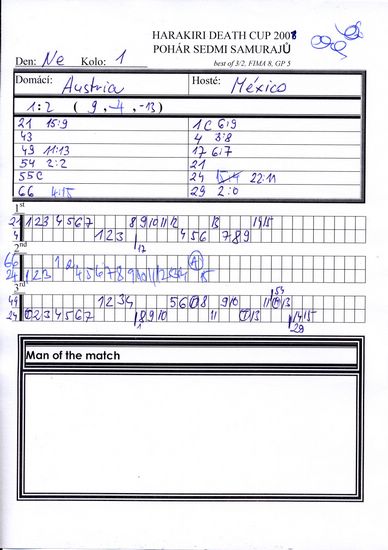 HARAKIRI DEATH CUP 2008
POHÁR SEDMI SAMURAJŮ
Den: Ne Kolo: 1 best of 3/2, FIMA 8, GP 5
Domácí: Austria Hosté: México
1:2 ( 9, -4, -13)
21 15:9 1C 6:9
43 4 3:8
49 11:13 17 6:7
54 2:2 21
55C 24 22:11
66 4:15 29 2:0
1st
21 1 2 3 4 5 6 7 8 9 10 11 12 13 14 15
4 1 2 3 4 5 6 7 8 9
17
2nd
66 1 2
24 1 2 3 4 5 6 7 8 9 10 11 12 13 14 15
3rd
54
49 1 2 3 4 5 6 7 8 9 10 11 12 13
24 1 2 3 4 5 6 7 8 9 10 11 12 13 14 15
1 29
Man of the match